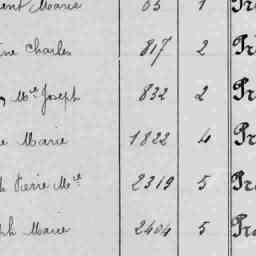 Marie 65 1 Pr
Charles 817 2 Pr
Mie Joseph 832 2 Pr
Marie 1822 4 Pr
Pierre Mie 2319 5 Pr
ph Marie 2404 5 Pro